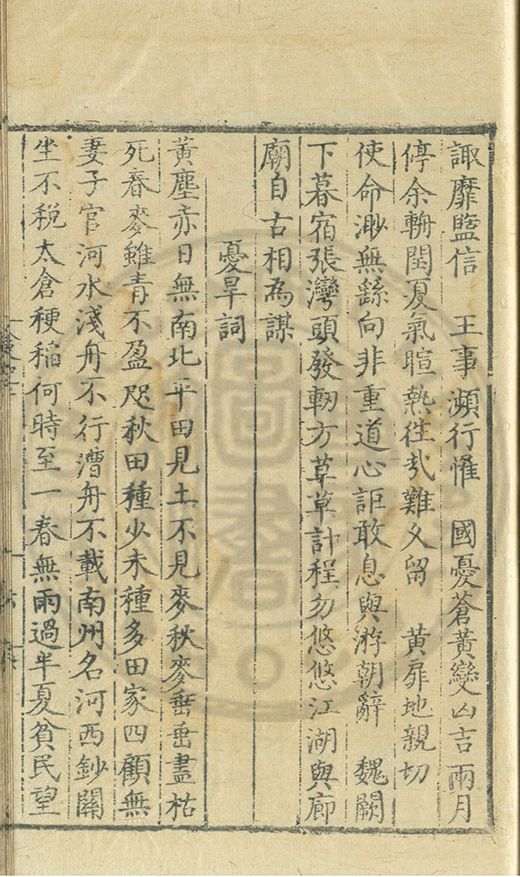 諏靡盬信　王事瀕行惟　國憂蒼黃變凶吉兩月
停余輈閏夏氣暄熱徃哉難久留　黃扉地親切
使命渺無繇向非重道心詎敢息與游朝辭　魏闕
下暮宿張灣頭發軔方草草計程勿悠悠江湖與廊
廟自古相爲謀
憂旱詞
黃塵赤日無南北平田見土不見麥秋麥垂垂盡枯
死春麥雖青不盈咫秋田種少未種多田家四顧無
妻子官河水淺舟不行漕舟不載南州名河西鈔關
坐不稅太倉稉稻何時至一春無雨過半夏貧民望